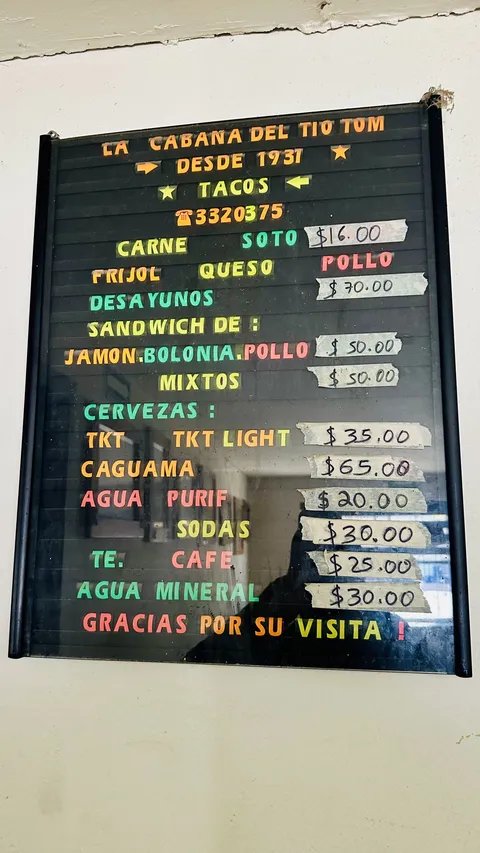 LA CABAÑA DEL TIO TOM
DESDE 1931
TACOS
☎3320375
CARNE SOTO $16.00
FRIJOL QUESO POLLO
DESAYUNOS $70.00
SANDWICH DE :
JAMON.BOLONIA.POLLO $50.00
MIXTOS $50.00
CERVEZAS :
TKT TKT LIGHT $35.00
CAGUAMA $65.00
AGUA PURIF $20.00
SODAS $30.00
TE. CAFE $25.00
AGUA MINERAL $30.00
GRACIAS POR SU VISITA !